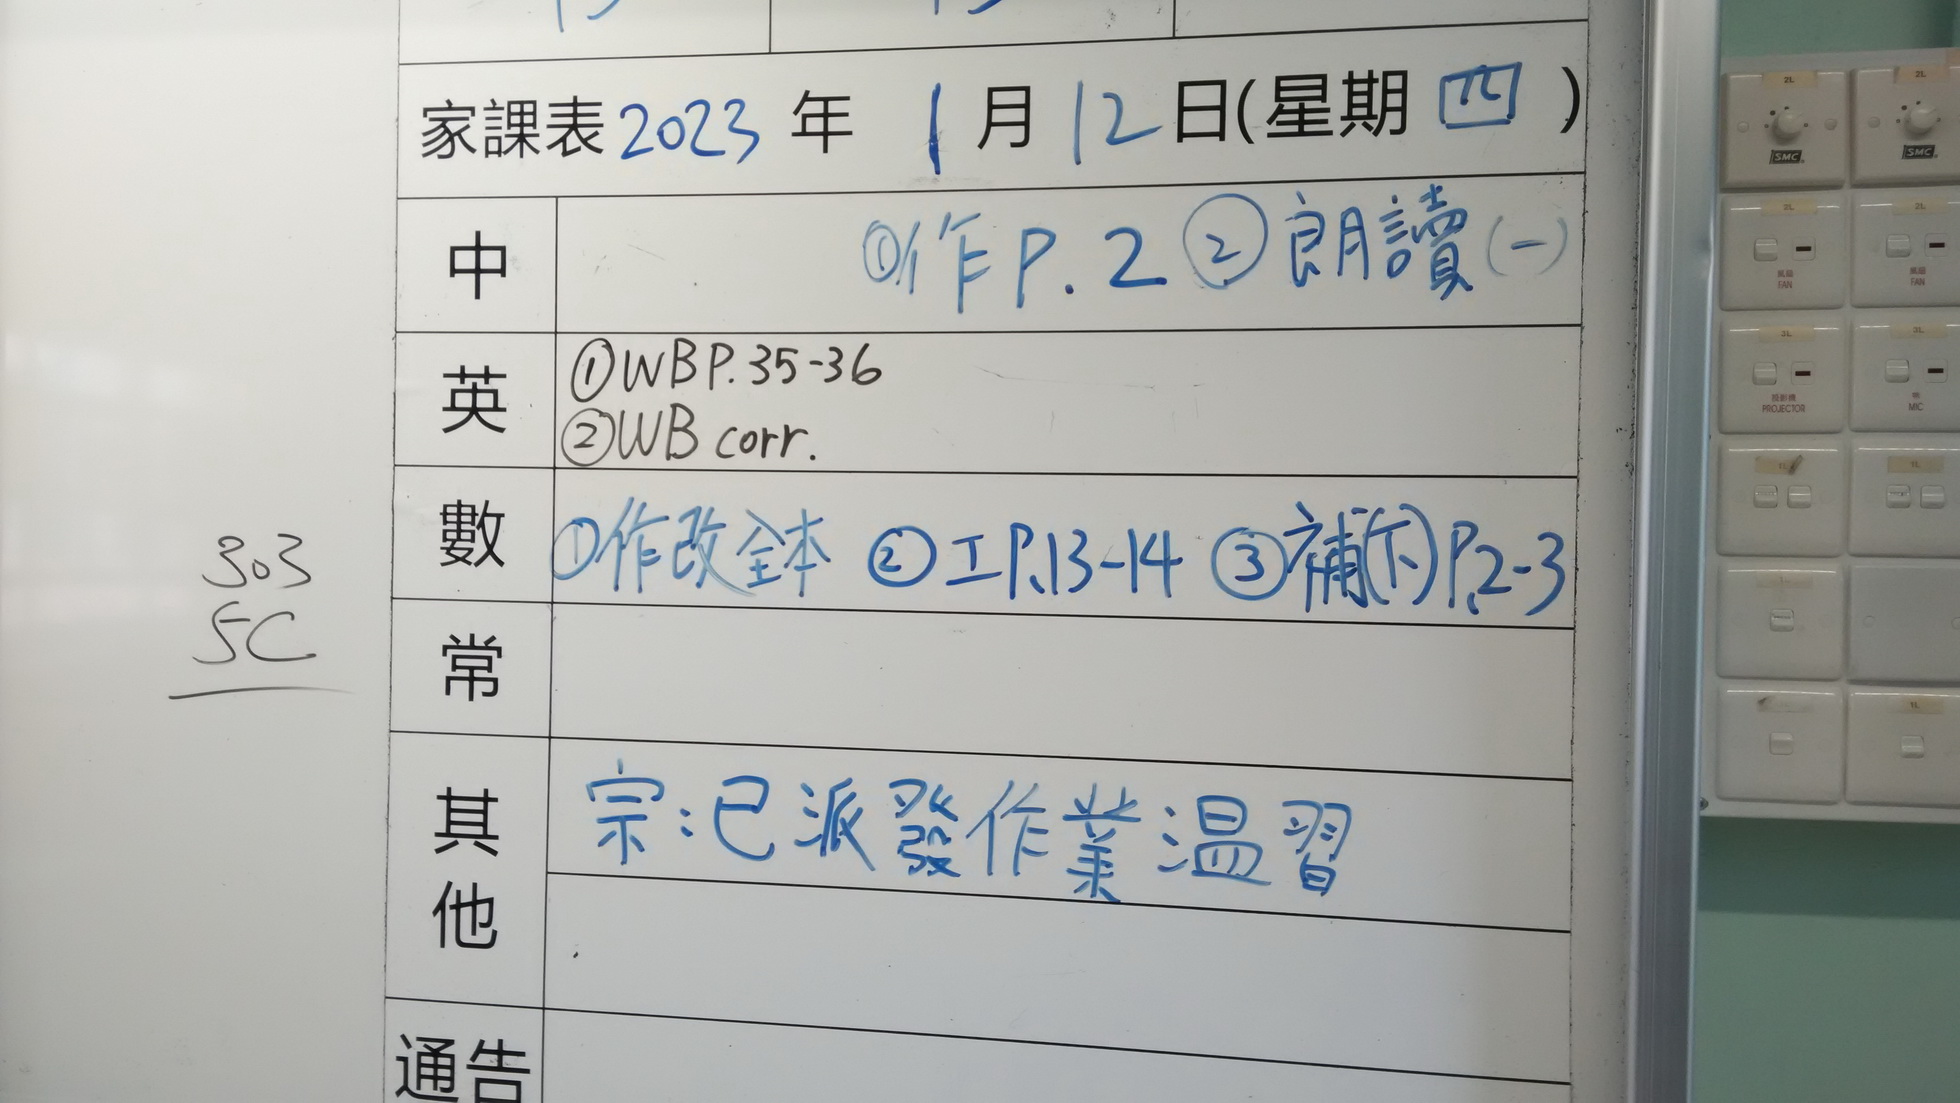 家課表 2023 年 1 月 12 日(星期 四 )
中 ①作 P. 2 ② 朗讀(一)
英 ①WB P. 35-36
②WB corr.
數 ①作改全本 ②工P.13-14 ③補(下)P.2-3
常
其他 宗:已派發作業温習
通告
303
5C
2L 2L
SMC SMC
2L 2L
風扇 風扇
FAN FAN
3L 3L
投影機 咪
PROJECTOR MIC
1L 1L
1L